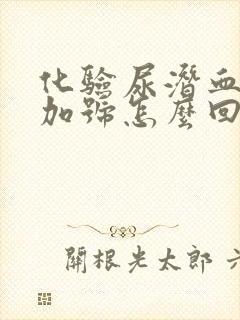 化驗尿潛血
加號怎麼回
關根光太郎 六